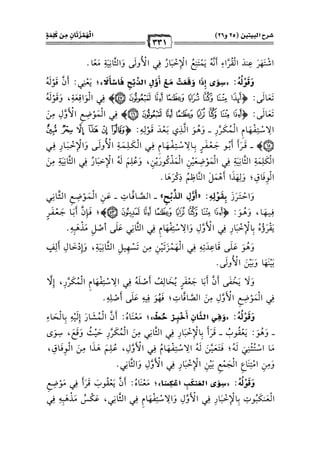 شرح البيتين (٢٥ و٢٦)
٣٣١
الْهَمْزَتَانِ مِنْ كَلِمَةٍ
اشْتَهَرَ عِنْدَ الْقُرَّاءِ أَنَّهُ يَمْتَنِعُ الْإِخْبَارُ فِي الْأُولَى وَالثَّانِيَةِ مَعًا.
وَقَوْلُهُ: «سِوَى إِذَا وَقَعَتْ مَعْ أَوَّلِ الذِّبْحِ فَاسْأَلَا»؛ يَعْنِي: أَنَّ قَوْلَهُ
تَعَالَى: ﴿أَءِذَا مِتْنَا وَكُنَّا تُرَابًا وَعِظَامًا أَءِنَّا لَمَبْعُوثُونَ﴾ فِي الْوَاقِعَةِ، وَقَوْلَهُ
تَعَالَى: ﴿أَءِذَا مِتْنَا وَكُنَّا تُرَابًا وَعِظَامًا أَءِنَّا لَمَبْعُوثُونَ﴾ فِي الْمَوْضِعِ الْأَوَّلِ مِنَ
الِاسْتِفْهَامِ الْمُكَرَّرِ ـ وَهُوَ الَّذِي بَعْدَ قَوْلِهِ: ﴿وَقَالُوا إِنْ هَذَا إِلَّا سِحْرٌ مُبِينٌ
﴾ ـ قَرَأَ أَبُو جَعْفَرٍ بِالْإِخْبَارِ فِي الْكَلِمَةِ الْأُولَى، وَالِاسْتِفْهَامِ فِي
الْكَلِمَةِ الثَّانِيَةِ فِي الْمَوْضِعَيْنِ الْمَذْكُورَيْنِ، وَعُلِمَ لَهُ الْإِخْبَارُ فِي الثَّانِيَةِ مِنَ
الْوِفَاقِ؛ وَلِهَذَا أَهْمَلَ النَّاظِمُ ذِكْرَهَا.
وَاحْتَرَزَ بِقَوْلِهِ: «أَوَّلِ الذِّبْحِ» ـ الصَّافَّاتِ ـ عَنِ الْمَوْضِعِ الثَّانِي
فِيهَا، وَهُوَ: ﴿أَءِذَا مِتْنَا وَكُنَّا تُرَابًا وَعِظَامًا أَءِنَّا لَمَدِينُونَ﴾ فَإِنَّ أَبَا جَعْفَرٍ
يَقْرَؤُهُ بِالْإِخْبَارِ فِي الْأَوَّلِ وَالِاسْتِفْهَامِ فِي الثَّانِي عَلَى أَصْلِ مَذْهَبِهِ.
وَهُوَ عَلَى قَاعِدَتِهِ فِي الْهَمْزَتَيْنِ مِنْ تَسْهِيلِ الثَّانِيَةِ، وَإِدْخَالِ أَلِفٍ
بَيْنَهَا وَبَيْنَ الْأُولَى.
وَلَا يَخْفَى أَنَّ أَبَا جَعْفَرٍ يُخَالِفُ أَصْلَهُ فِي الِاسْتِفْهَامِ الْمُكَرَّرِ، إِلَّا
فِي الْمَوْضِعِ الْأَوَّلِ مِنَ الصَّافَّاتِ؛ فَهُوَ فِيهِ عَلَى أَصْلِهِ.
وَقَوْلُهُ: «وَفِي الثَّانِ أَخْبِرْ حُطْ»؛ مَعْنَاهُ: أَنَّ الْمُشَارَ إِلَيْهِ بِالْحَاءِ
ـ وَهُوَ: يَعْقُوبُ ـ قَرَأَ بِالْإِخْبَارِ فِي الثَّانِي مِنَ الْمُكَرَّرِ حَيْثُ وَقَعَ، سِوَى
مَا اسْتُثْنِيَ لَهُ؛ فَتَعَيَّنَ لَهُ الِاسْتِفْهَامُ فِي الْأَوَّلِ، عُلِمَ هَذَا مِنَ الْوِفَاقِ،
وَمِنِ امْتِنَاعِ الْجَمْعِ بَيْنَ الْإِخْبَارِ فِي الْأَوَّلِ وَالثَّانِي.
وَقَوْلُهُ: «سِوَى الْعَنْكَبِ اعْكِسَا»؛ مَعْنَاهُ: أَنَّ يَعْقُوبَ قَرَأَ فِي مَوْضِعِ
الْعَنْكَبُوتِ بِالْإِخْبَارِ فِي الْأَوَّلِ وَالِاسْتِفْهَامِ فِي الثَّانِي، عَكْسُ مَذْهَبِهِ فِي